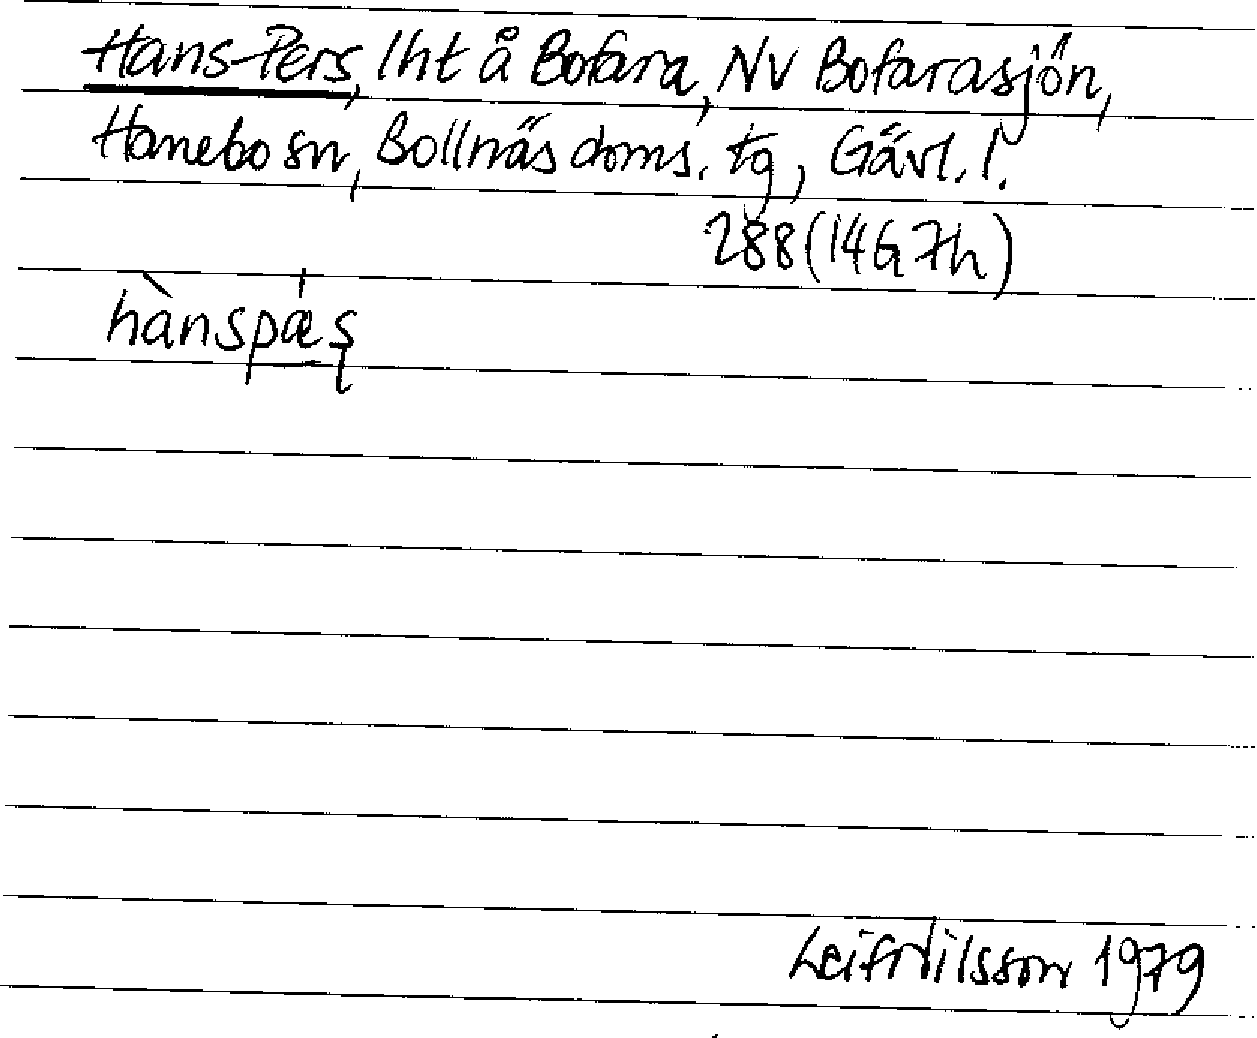 Hans-Pers, lht å Bofara, NV Bofarasjön,
Hanebo sn, Bollnäs doms. tg, Gävl. l.
288 (14G 7h)
hànspæ̍ʂ
Leif Nilsson 1979